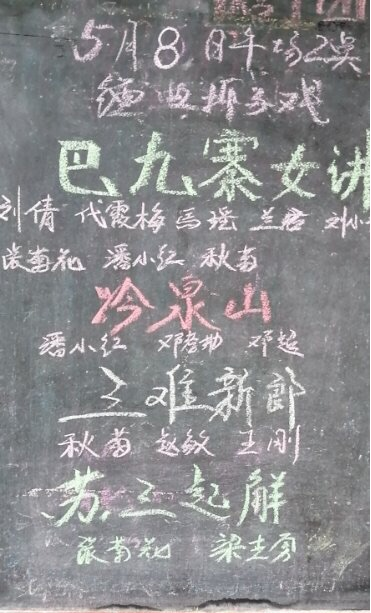 5月8日午场2点
经典折子戏
巴九寨女讲
刘倩 代霞梅 马瑶 兰君 刘小
张菊花 潘小红 秋菊
吟泉山
潘小红 邓孝勋 邓超
三难新郎
秋菊 赵敏 王刚
苏三起解
张菊花 梁志勇